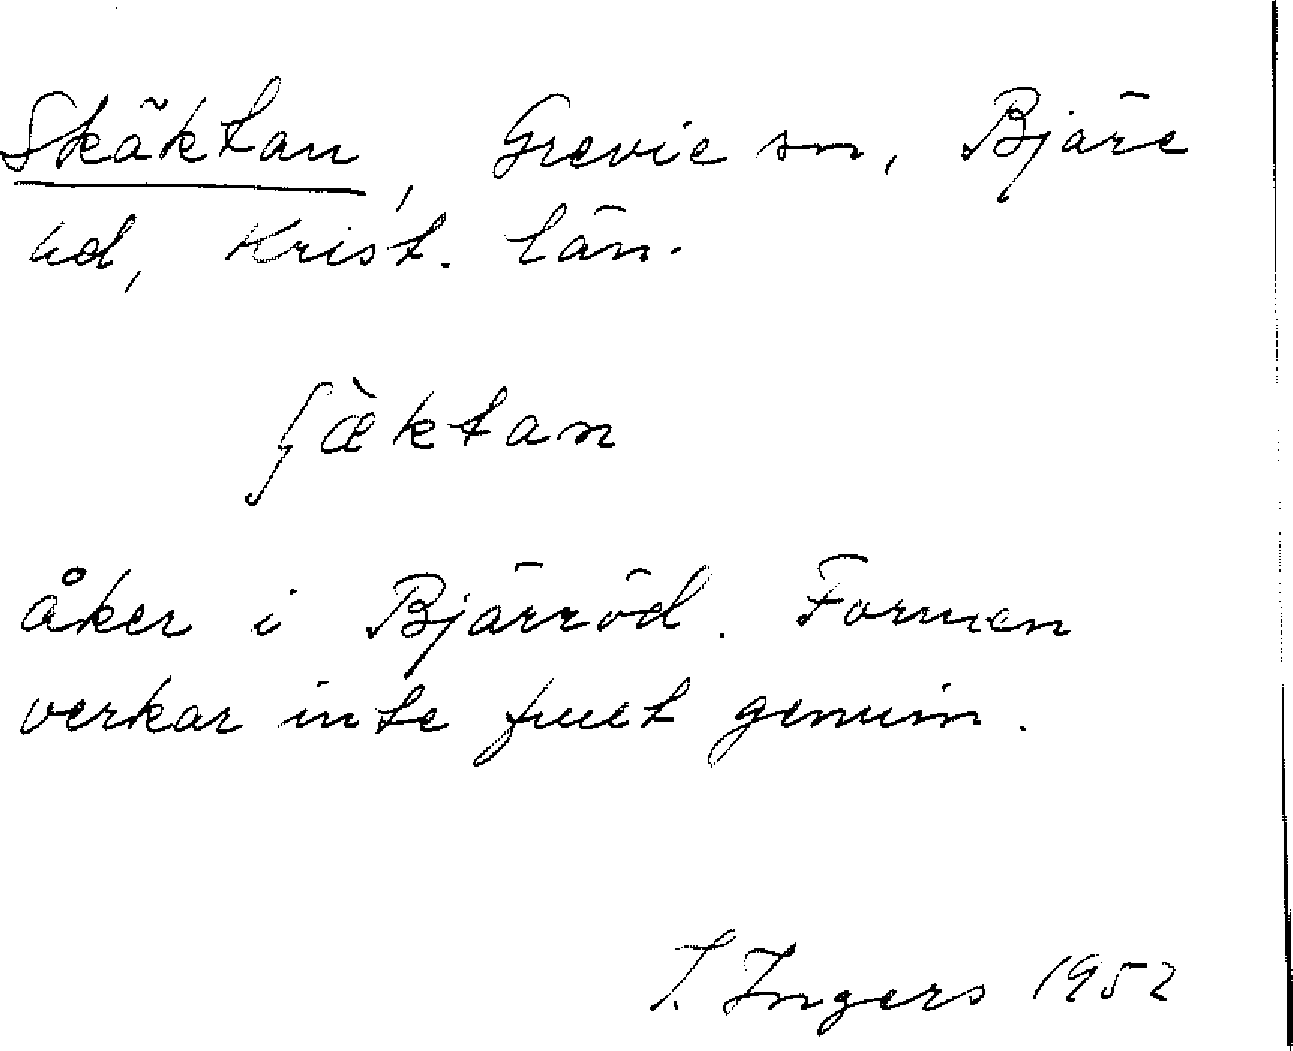 Skäktan, Grevie sn, Bjäre
hd, Krist. län.
ʃæ̀ktan
åker i Bjärröd. Formen
verkar inte fullt genuin.
I. Ingers 1952